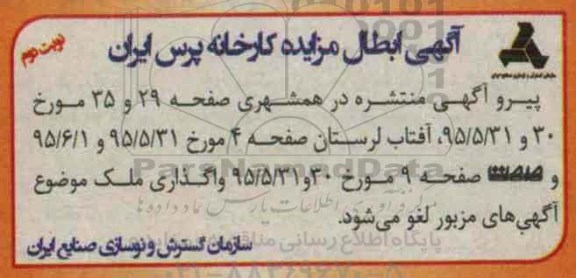 آگهی ابطال مزایده کارخانه پرس ایران
نوبت دوم
پیرو آگهی منتشره در همشهری صفحه ۲۹ و ۳۵ مورخ
۳۰ و ۹۵/۵/۳۱، آفتاب لرستان صفحه ۴ مورخ ۹۵/۵/۳۱ و ۹۵/۶/۱
و صمت صفحه ۹ مورخ ۳۰ و ۹۵/۵/۳۱ واگذاری ملک موضوع
آگهی‌های مزبور لغو می‌شود.
سازمان گسترش و نوسازی صنایع ایران
ParsNamadData
پایگاه اطلاع رسانی